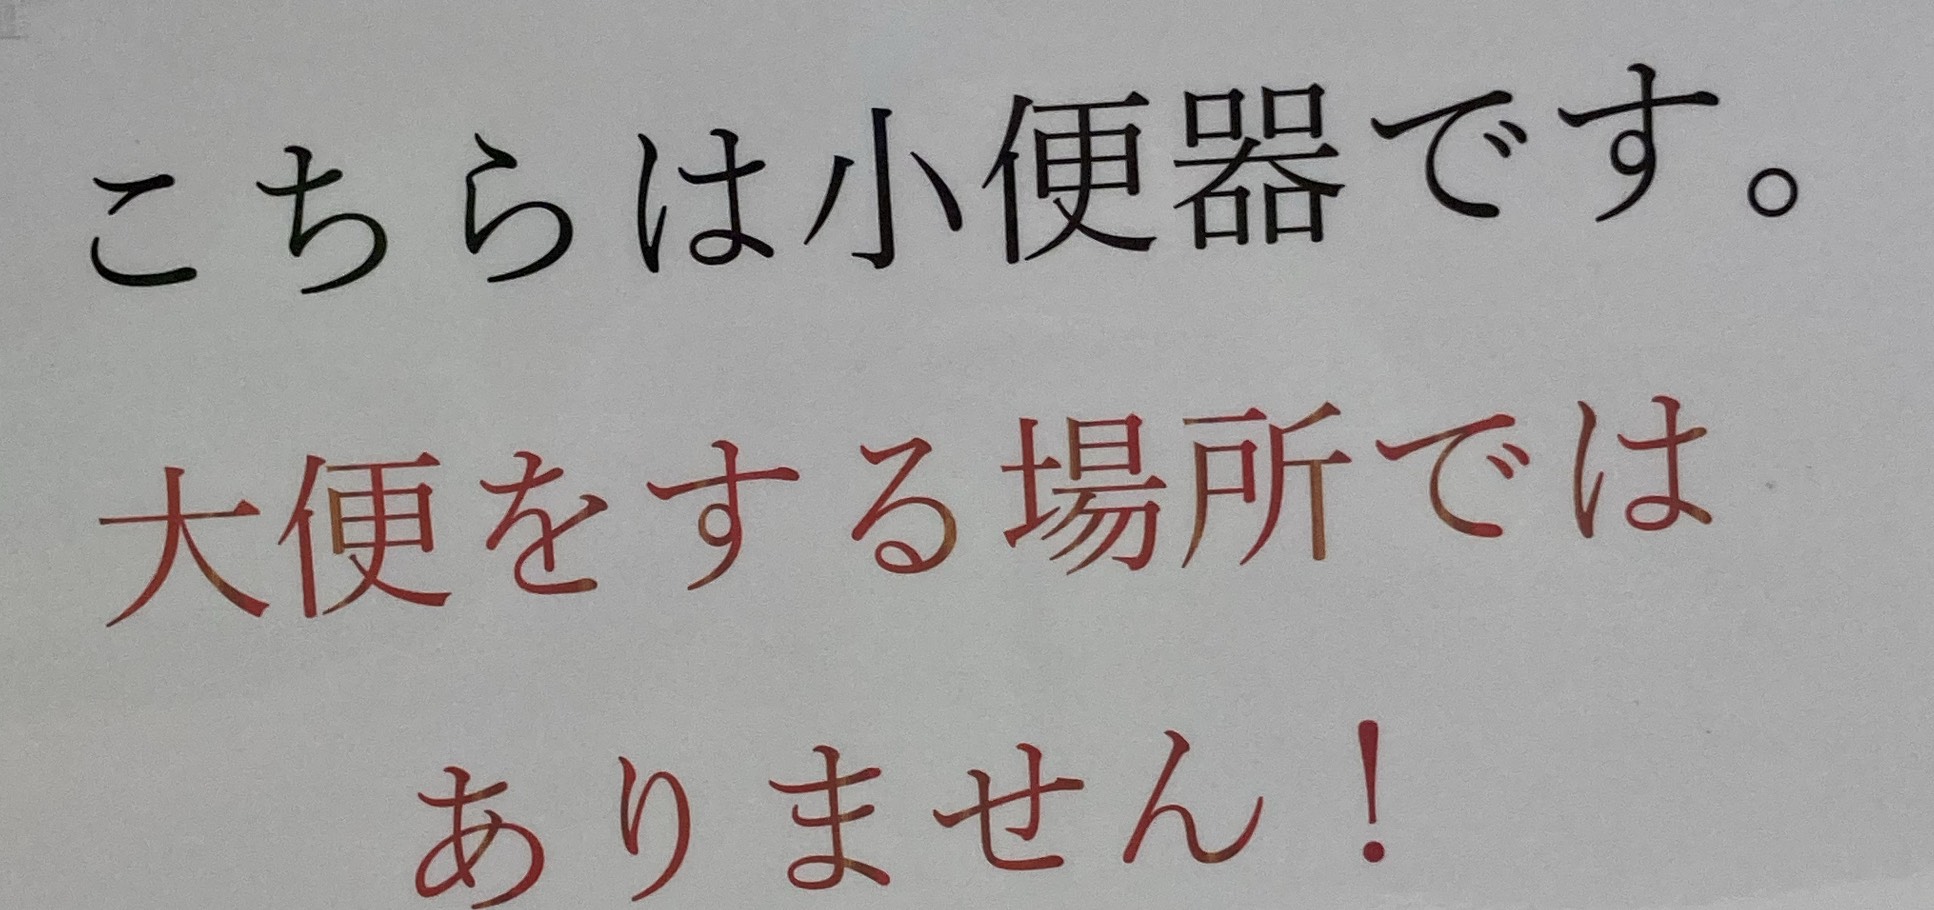 こちらは小便器です。
大便をする場所では
ありません！